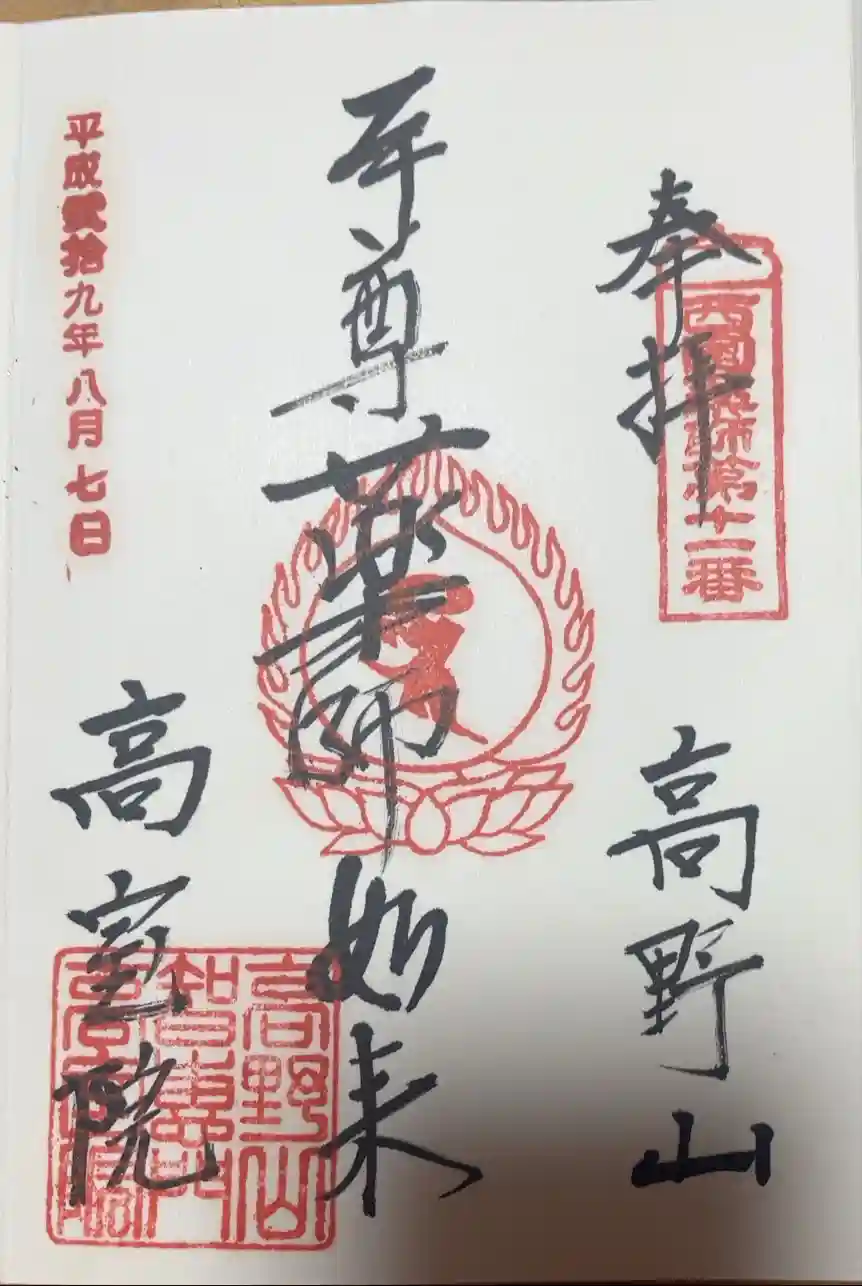 奉拝 高野山
西國薬師第十一番
尊薬師如来
高室院
高野山
智門
高室院
平成貳拾九年八月七日